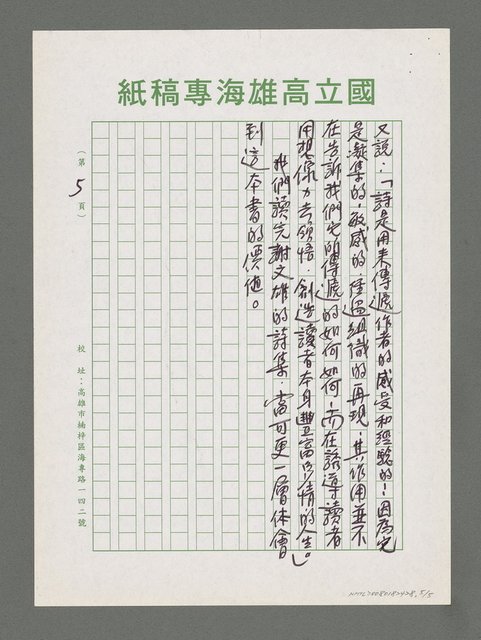 國立高雄海專稿紙
又說：「詩是用來傳遞作者的感受和經驗的！因為它
是凝集的，敏感的，經過組織的再現，其作用並不
在告訴我們它所傳遞的如何如何，而在誘導讀者
用想像力去領悟，創造讀者本身豐富的情的人生。」
我們讀完謝文雄的詩集，當可更一層体會
到這本書的價值。
（第5頁）
校址：高雄市楠梓區海專路一四二號